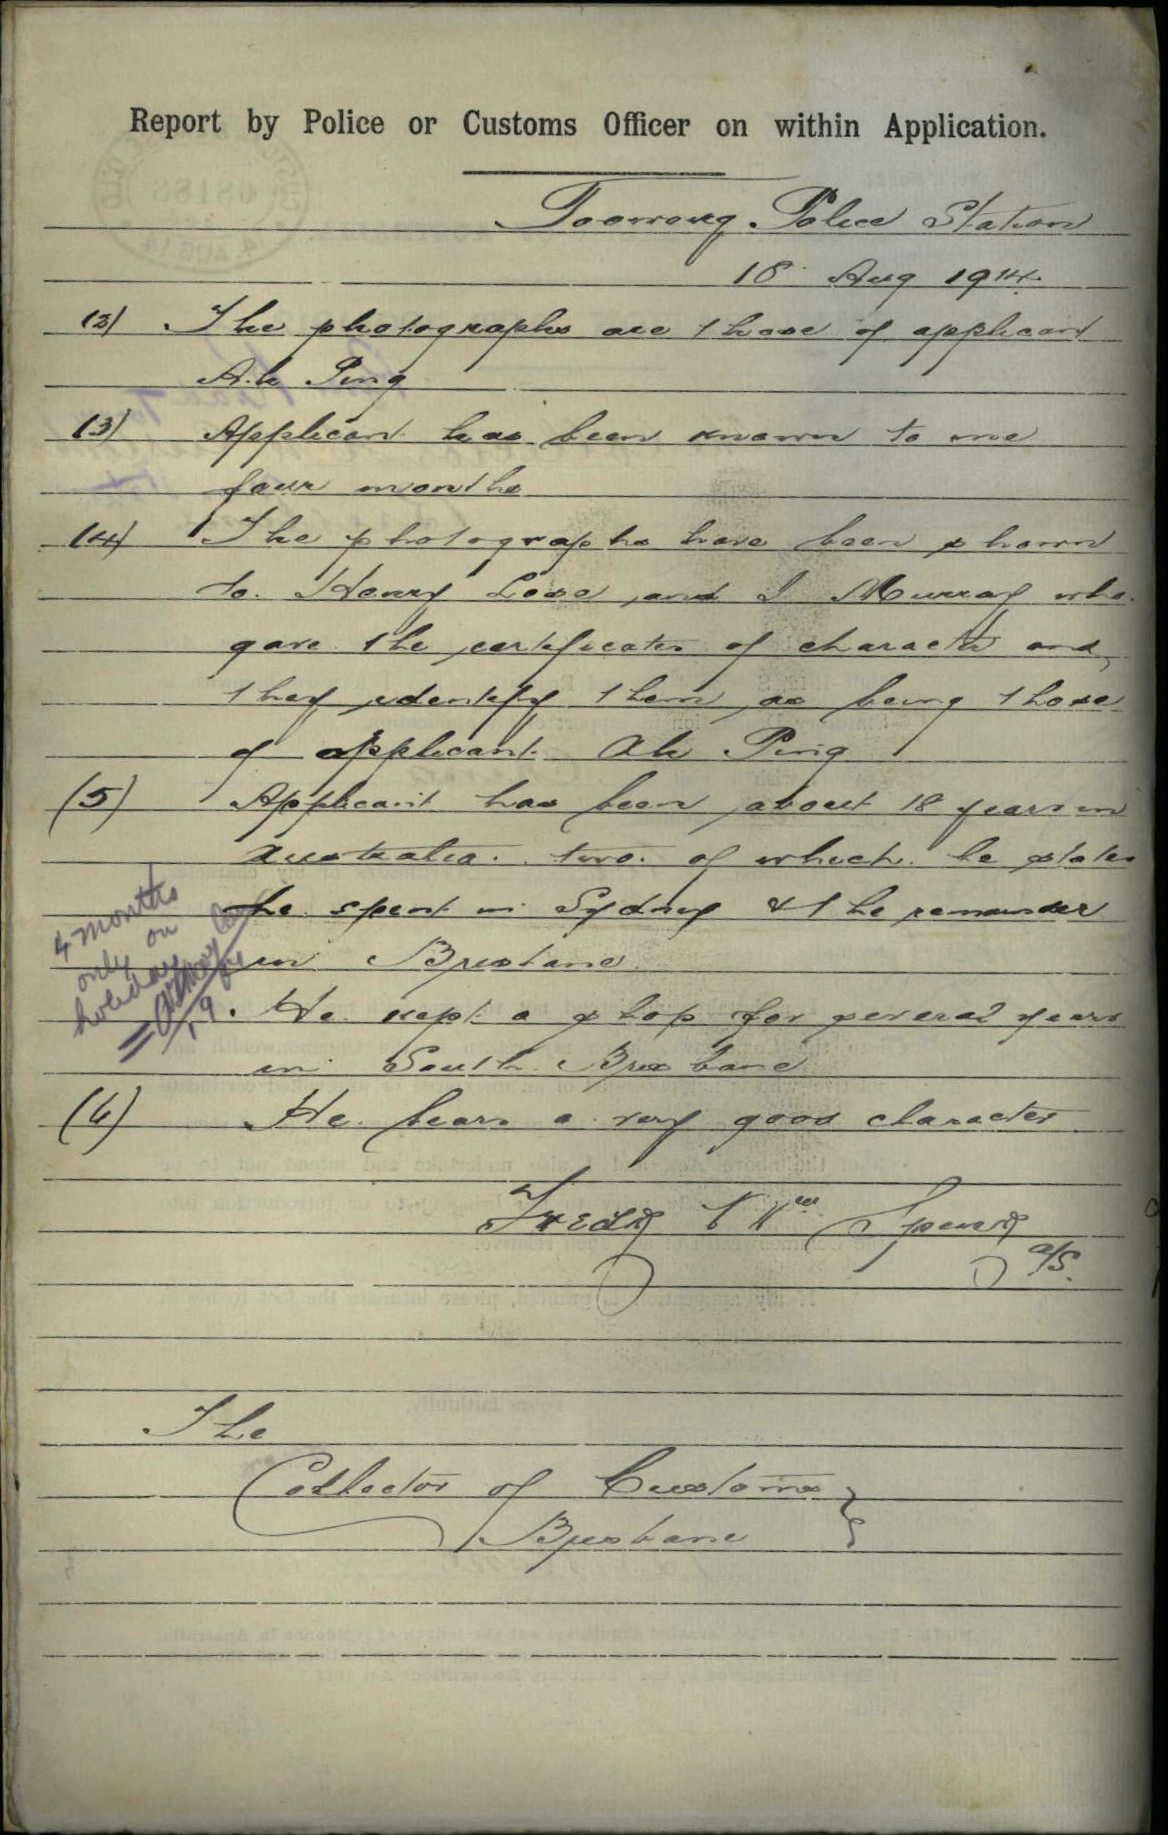 Report by Police or Customs Officer on within Application.
Toowong Police Station
18 Aug 1914
(2) The photographs are those of applicant
Ah Ping
(3) Applicant has been known to me
four months
(4) The photographs have been shown
to Henry Lose and J Murray who
gave the certificates of character and
they identify them as being those
of applicant Ah Ping
(5) Applicant has been about 18 years in
Australia. two of which he states
he spent in Sydney & the remainder
in Brisbane
He kept a shop for several years
in South Brisbane
(6) He bears a very good character
4 months
only on
holiday
19
Fredk Wm
a/S.
The
Collector of Customs
Brisbane